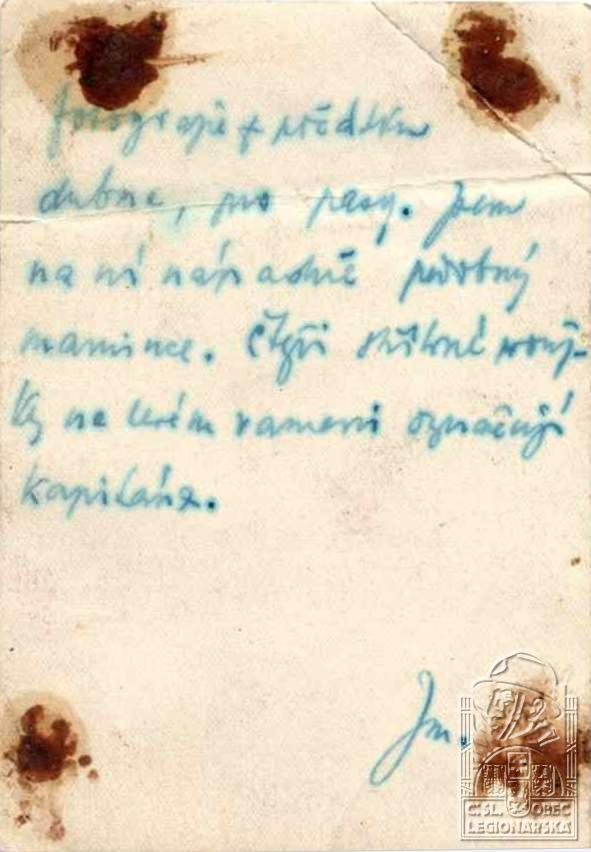 fotografie z počátku
dubna, pro pasy. Jsem
na ní nápadně podobný
mamince. Čtyři stříbrné prouž-
ky na levém rameni označují
kapitána.
Jm.
Č.SL. OBEC
LEGIONÁŘSKÁ